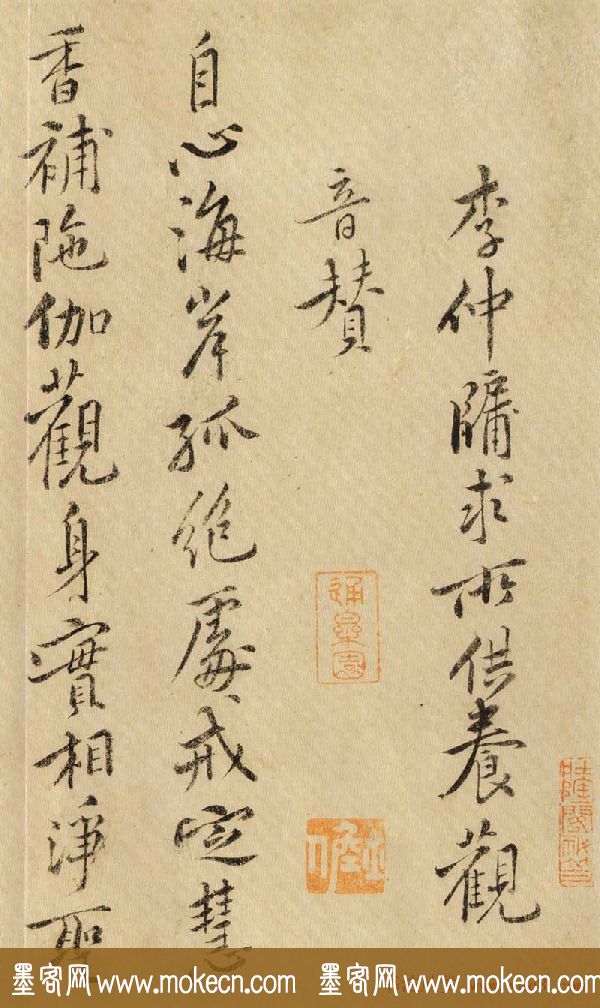 李仲牖求所供養觀
音賛
自心海岸孤絶處戒定慧
香補陁伽觀身實相淨聖
墨客网 www.mokecn.com 墨客网 www.mokecn.com